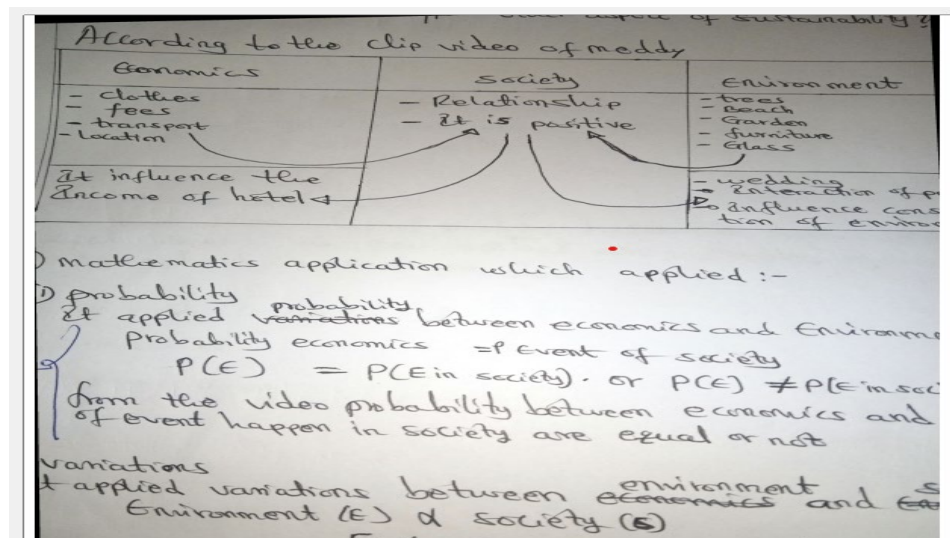 other aspect of sustainability?
According to the clip video of meddy
Economics
Society
Environment
- clothes
- fees
- transport
- Location
- Relationship
- It is positive
- trees
- Beach
- Garden
- furniture
- Glass
It influence the
Income of hotel
- wedding
- Interaction of p
Influence cons
tion of environ
) mathematics application which applied :-
① probability
probability
It applied variations between economics and Environme
Probability economics = P Event of society
P(E) = P(E in society). or P(E) ≠ P(E in soc
from the video probability between economics and
of event happen in society are equal or not
variations
t applied variations between economics and
environment
Environment (E) α society (S)